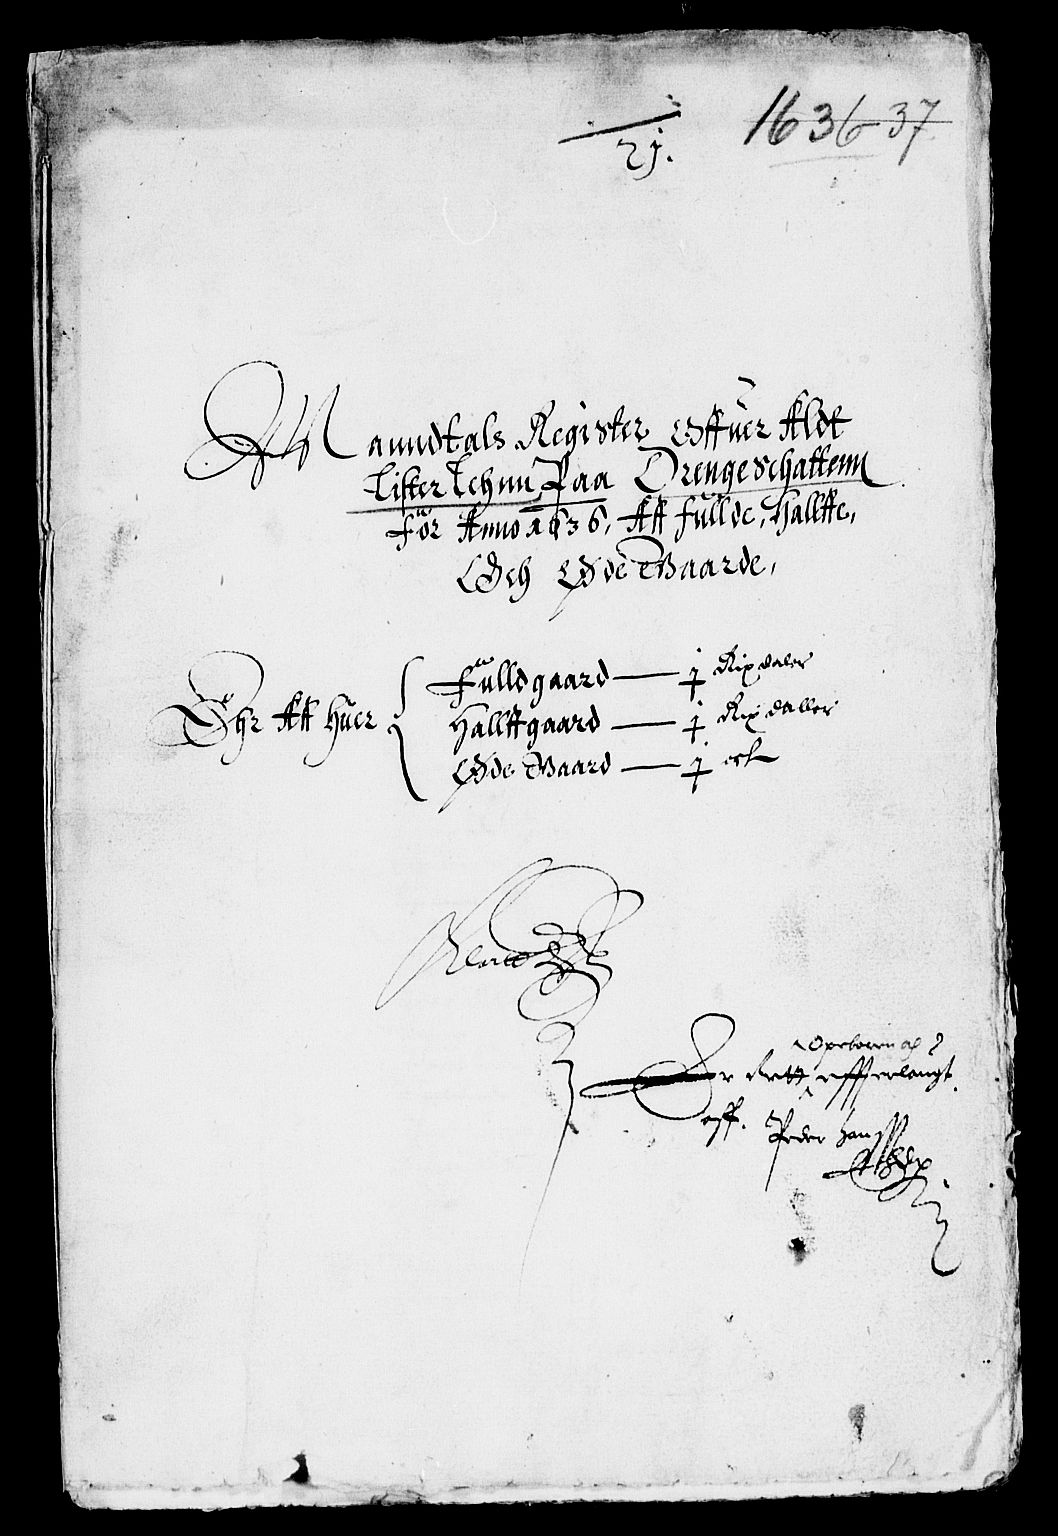 1636-37
21.
Manndtals Register Offuer Aldt
Lister Lehnn Paa Drengeschattenn
För Anno 1636, Aff Fullde, Hallffe,
Och Øde Gaarde,
Ehr Aff Huer
Fulldgaard — j Rixdaler
Hallffgaard — j Rix daller
Øde Gaard — j ort
Er rett effter
eff. Peder Hanss